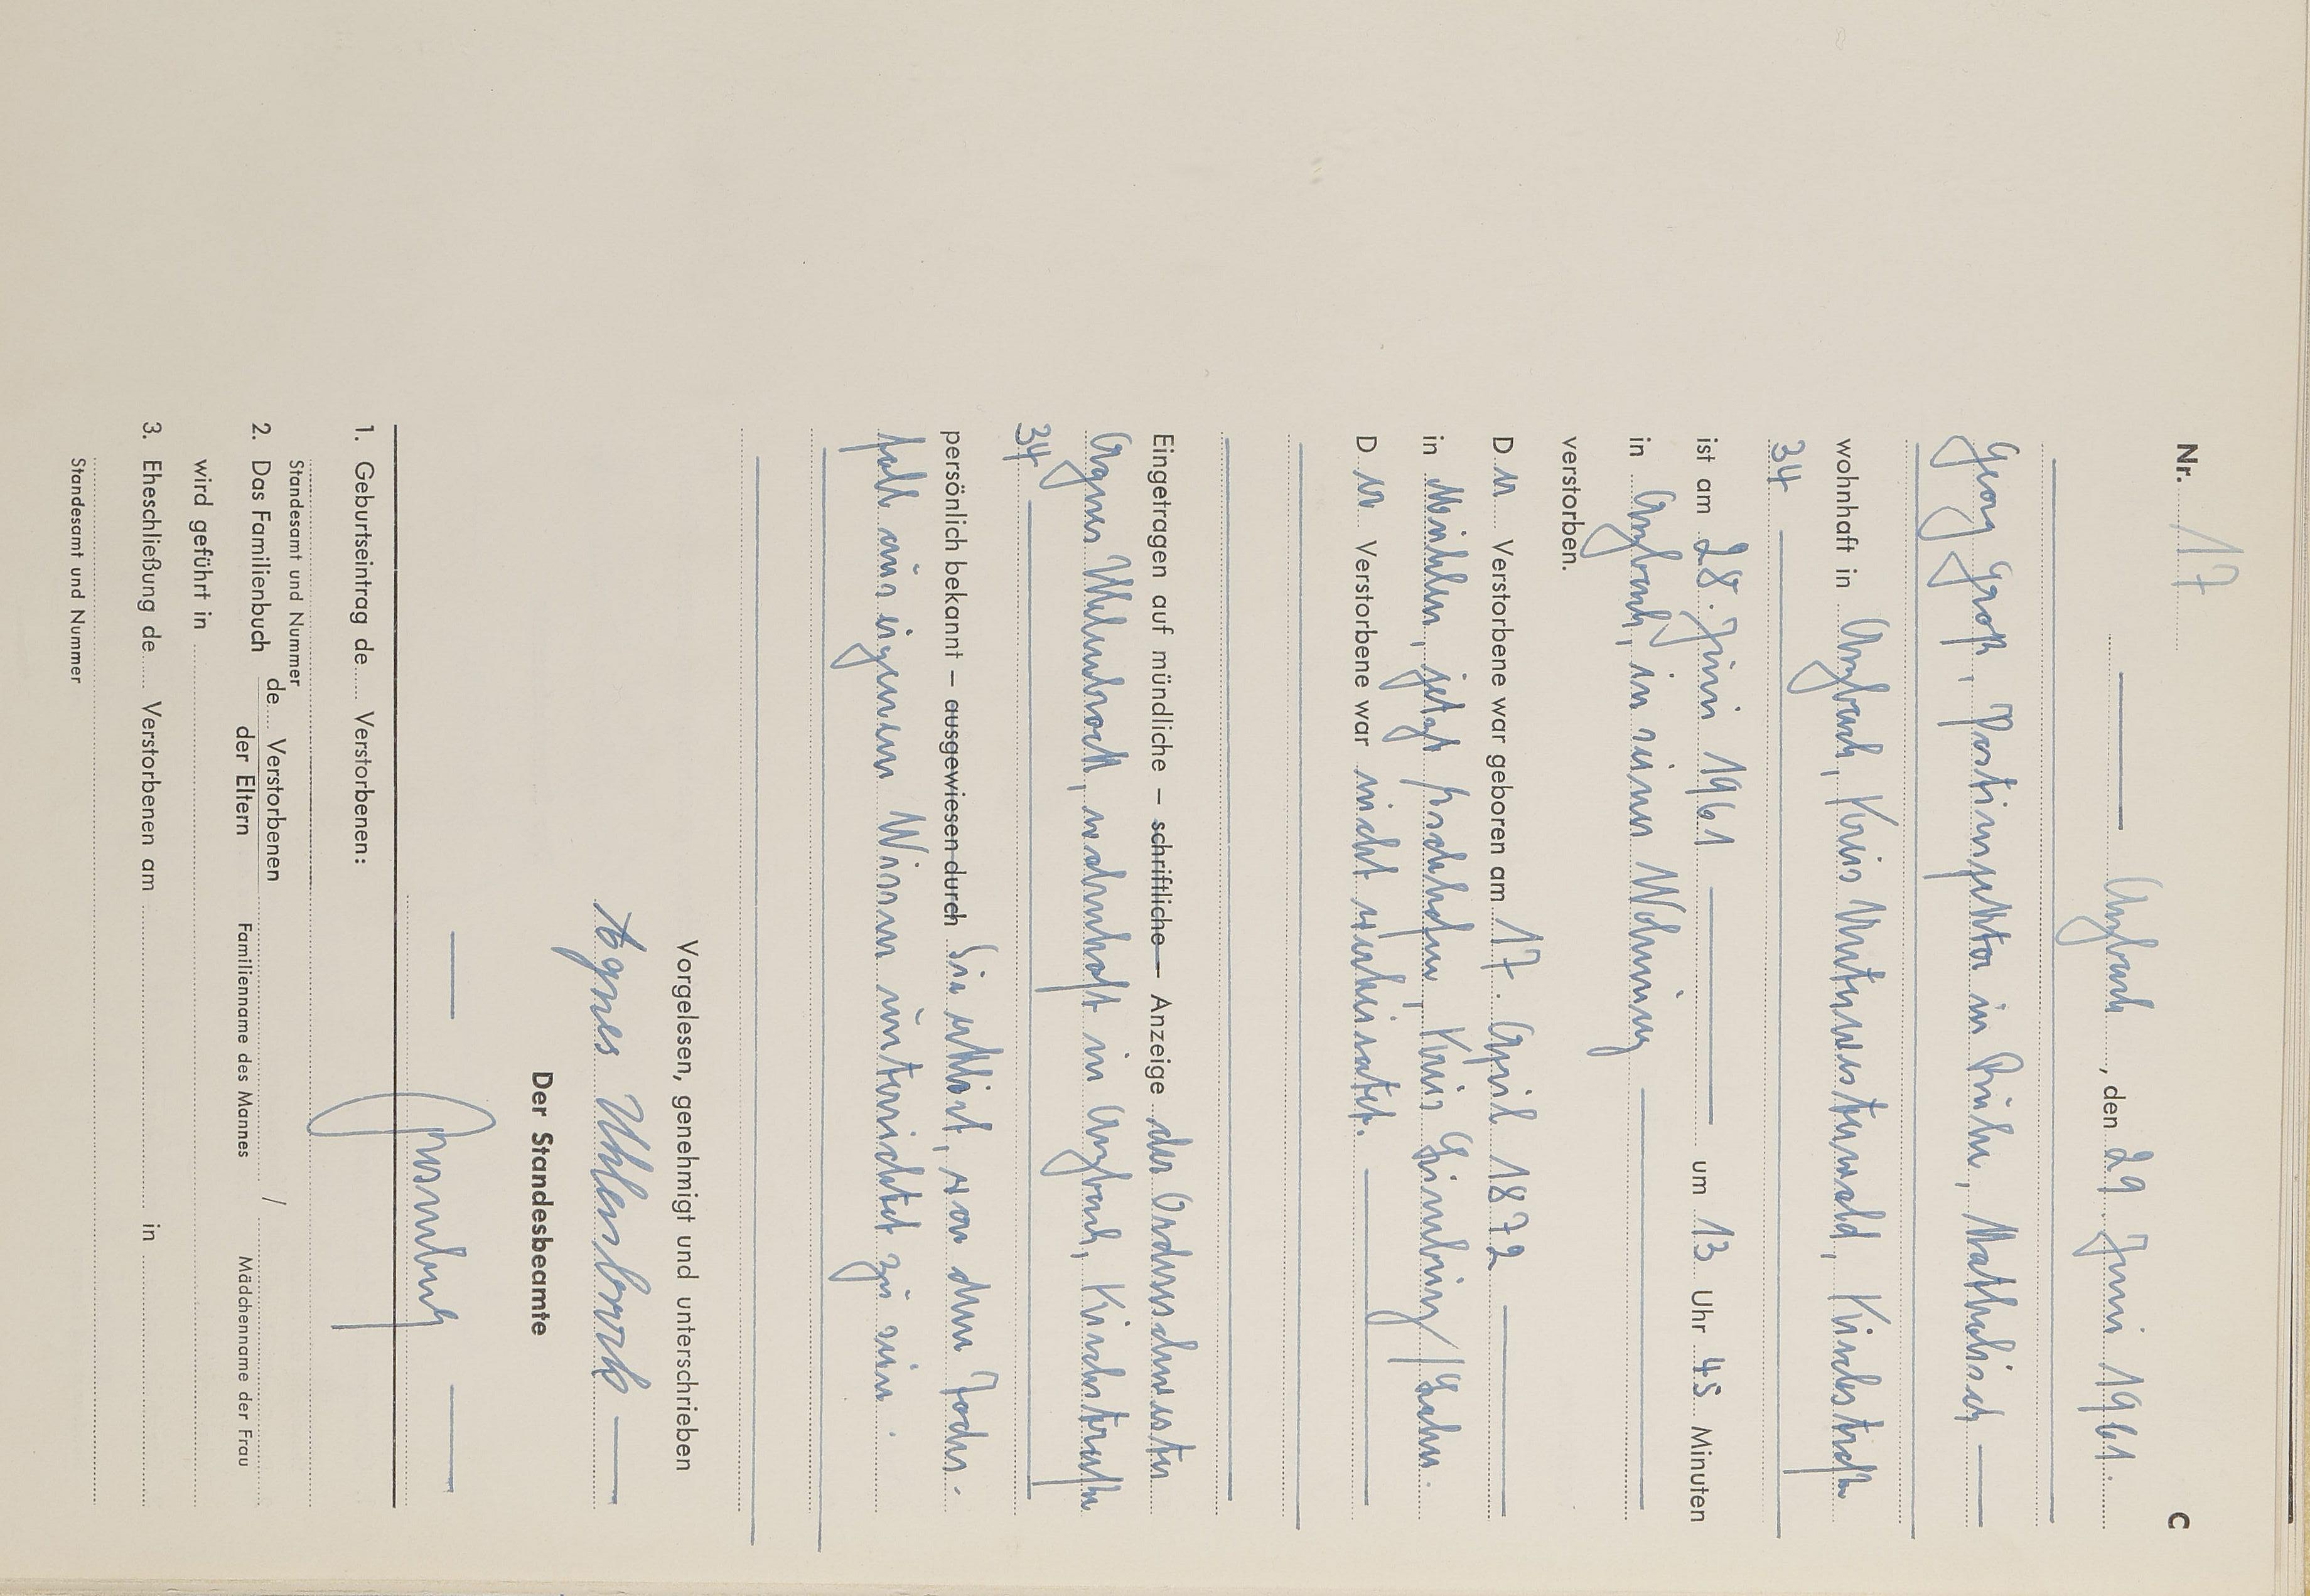 Nr. 17 C
Arzbach, den 29. Juni 1961.
Georg Groß, Postinspektor in Ruhe, katholisch
wohnhaft in Arzbach, Kreis Unterwesterwald, Kirchstraße
34
ist am 28. Juni 1961 um 13 Uhr 45 Minuten
in Arzbach, in seiner Wohnung
verstorben.
Der Verstorbene war geboren am 17. April 1872
in Mühlen, jetzt Kreis Limburg/Lahn.
Der Verstorbene war nicht verheiratet.
Eingetragen auf mündliche – schriftliche – Anzeige der Ordensschwester
Agnes Uhlenbrock, wohnhaft in Arzbach, Kirchstraße
34
persönlich bekannt – ausgewiesen durch Sie erklärt, von dem Todes-
falle aus eigenem Wissen unterrichtet zu sein.
Vorgelesen, genehmigt und unterschrieben
Agnes Uhlenbrock
Der Standesbeamte
1. Geburtseintrag de Verstorbenen:
Standesamt und Nummer
2. Das Familienbuch de Verstorbenen /
der Eltern Familienname des Mannes Mädchenname der Frau
wird geführt in
3. Eheschließung de Verstorbenen am in
Standesamt und Nummer